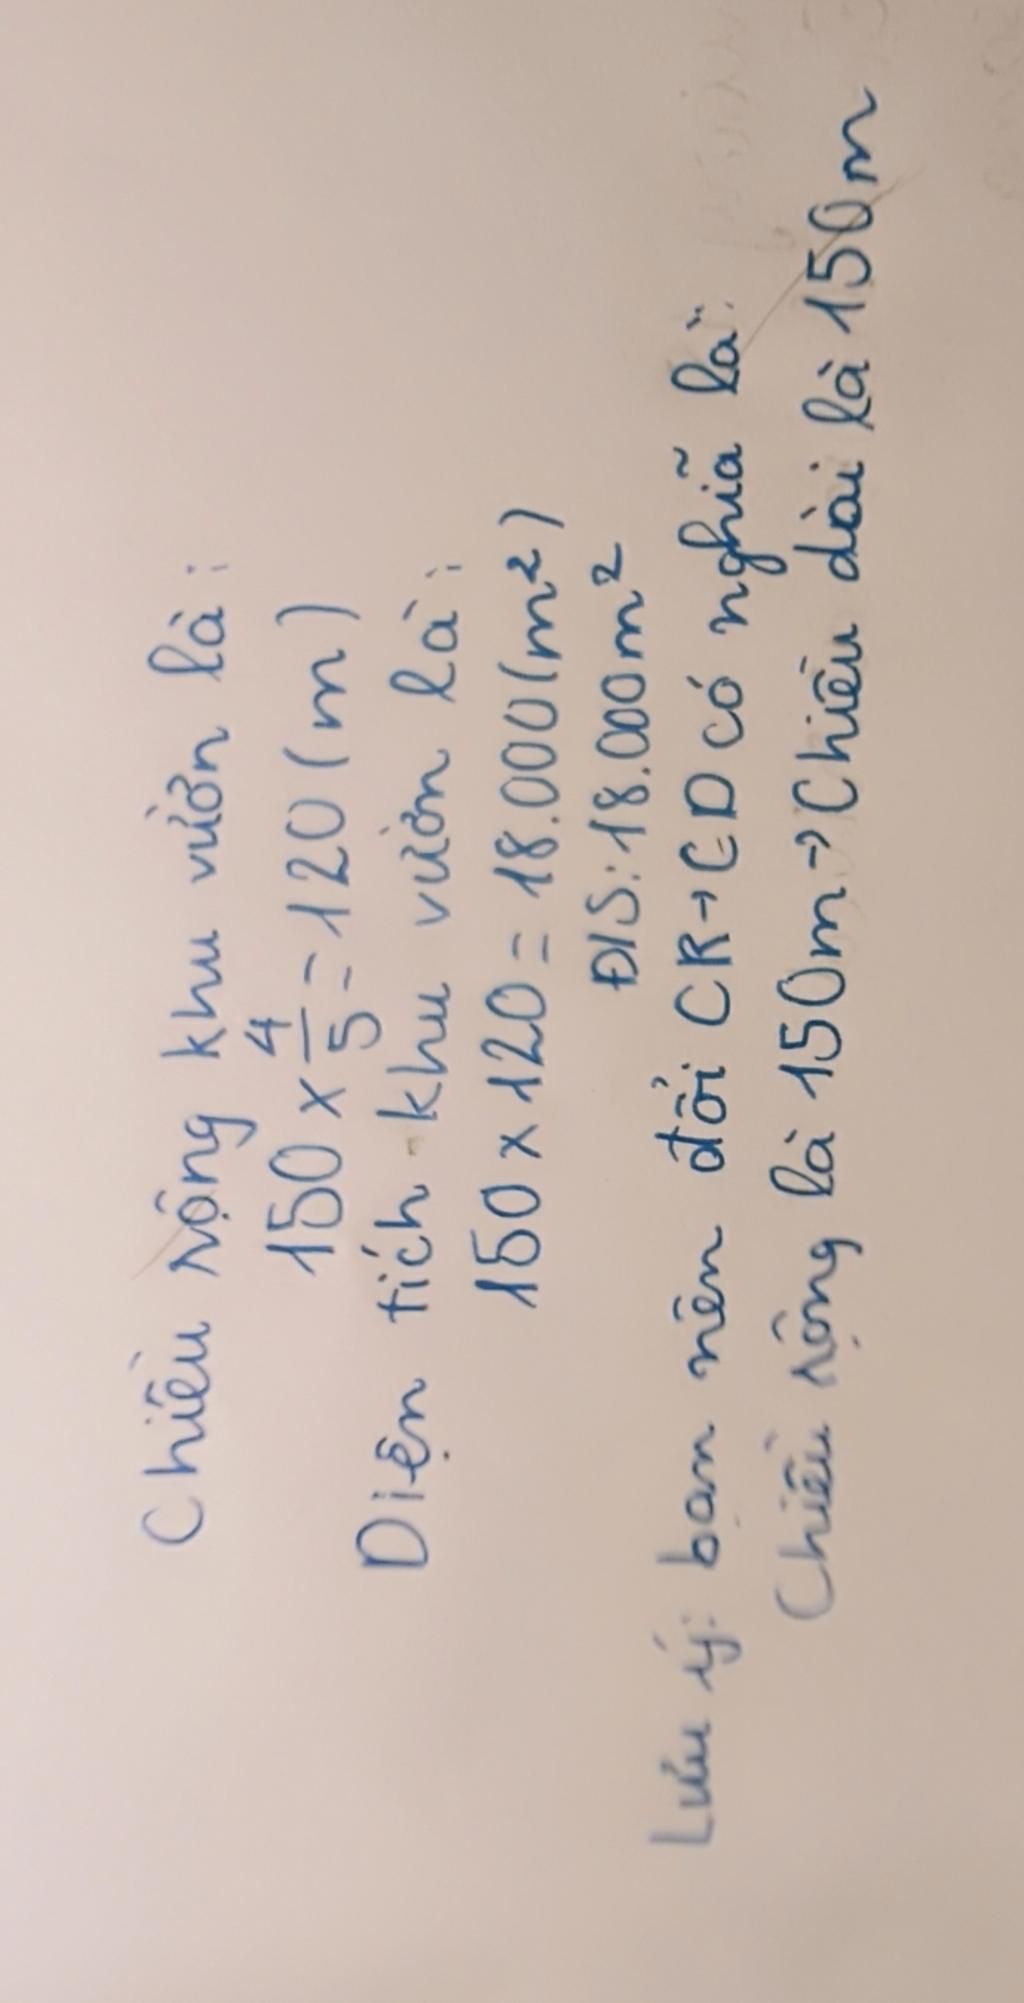 Chiều rộng khu vườn là:
150 x 4/5 = 120 (m)
Diện tích khu vườn là:
150 x 120 = 18.000 (m²)
Đ/S: 18.000m²
Lưu ý: bạn nên đổi CR→CD có nghĩa là:
Chiều rộng là 150m→Chiều dài là 150m